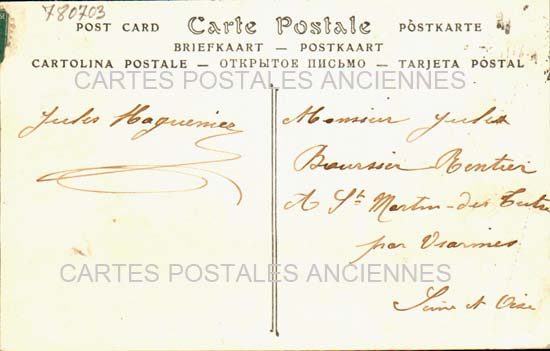 780703
POST CARD Carte Postale PÒSTKARTE
BRIEFKAART — POSTKAART
CARTOLINA POSTALE — ОТКРЫТОЕ ПИСЬМО — TARJETA PÓSTAL
CARTES POSTALES ANCIENNES
Jules
Monsieur Jules
Boursier Rentier
A St Martin-des
par Usarines
CARTES POSTALES ANCIENNES
Seine et Oise